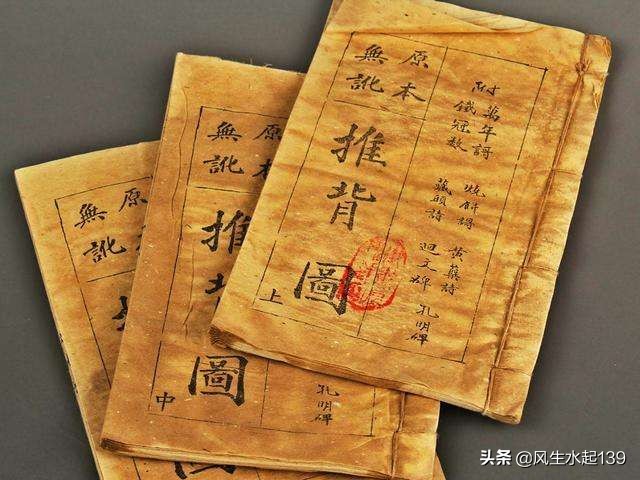 附萬年謌
鐵冠数
燒餅謌
藏頭詩
黄蘗詩
迴文碑
孔明碑
原本
無訛
推背圖
上
原本
無訛
推背圖
中
孔明碑
原本
無訛
头条 @风生水起139